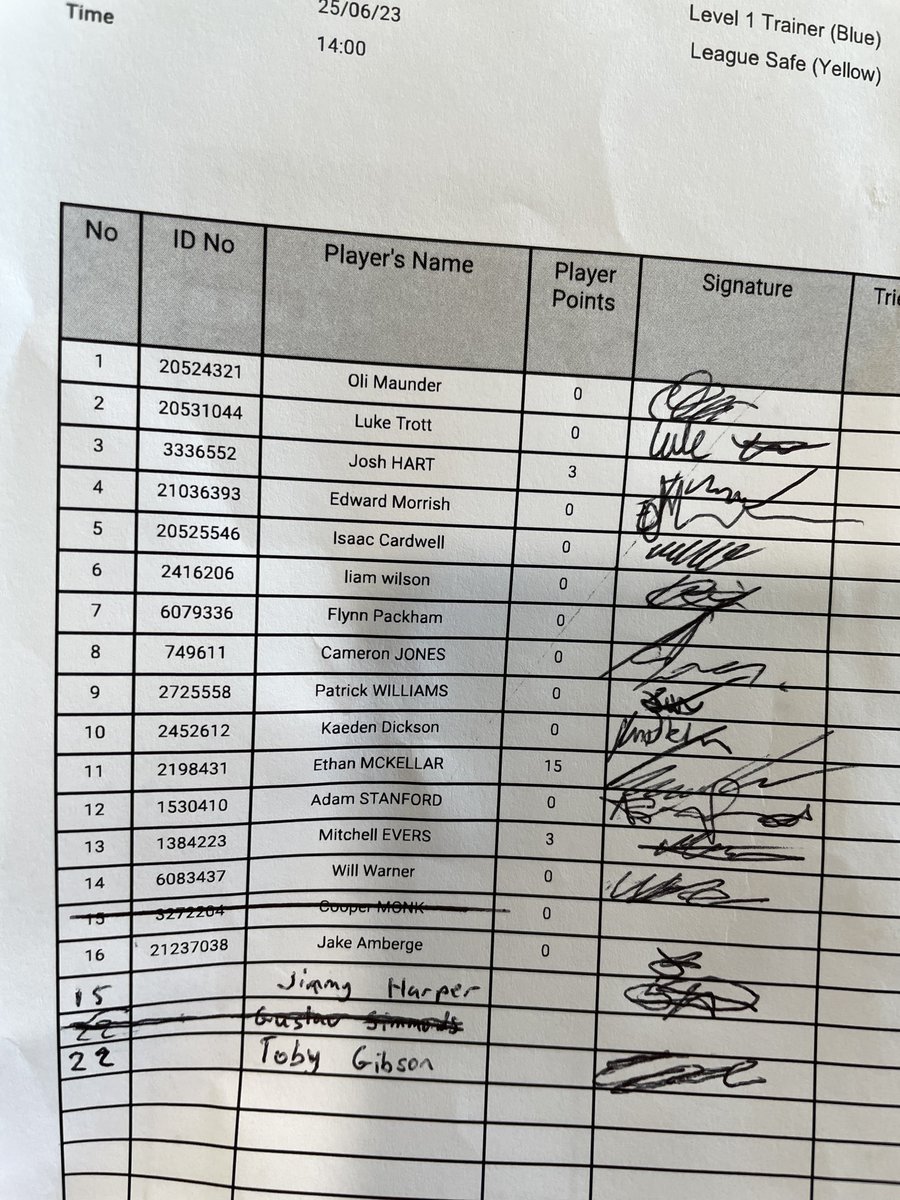 Time 25/06/23 Level 1 Trainer (Blue)
14:00 League Safe (Yellow)
No ID No Player's Name Player Points Signature
1 20524321 Oli Maunder 0
2 20531044 Luke Trott 0
3 3336552 Josh HART 3
4 21036393 Edward Morrish 0
5 20525546 Isaac Cardwell 0
6 2416206 liam wilson 0
7 6079336 Flynn Packham 0
8 749611 Cameron JONES 0
9 2725558 Patrick WILLIAMS 0
10 2452612 Kaeden Dickson 0
11 2198431 Ethan MCKELLAR 15
12 1530410 Adam STANFORD 0
13 1384223 Mitchell EVERS 3
14 6083437 Will Warner 0
15 3272204 Cooper MONK 0
16 21237038 Jake Amberge 0
15 Jimmy Harper
22 Gustav Simmonds
22 Toby Gibson